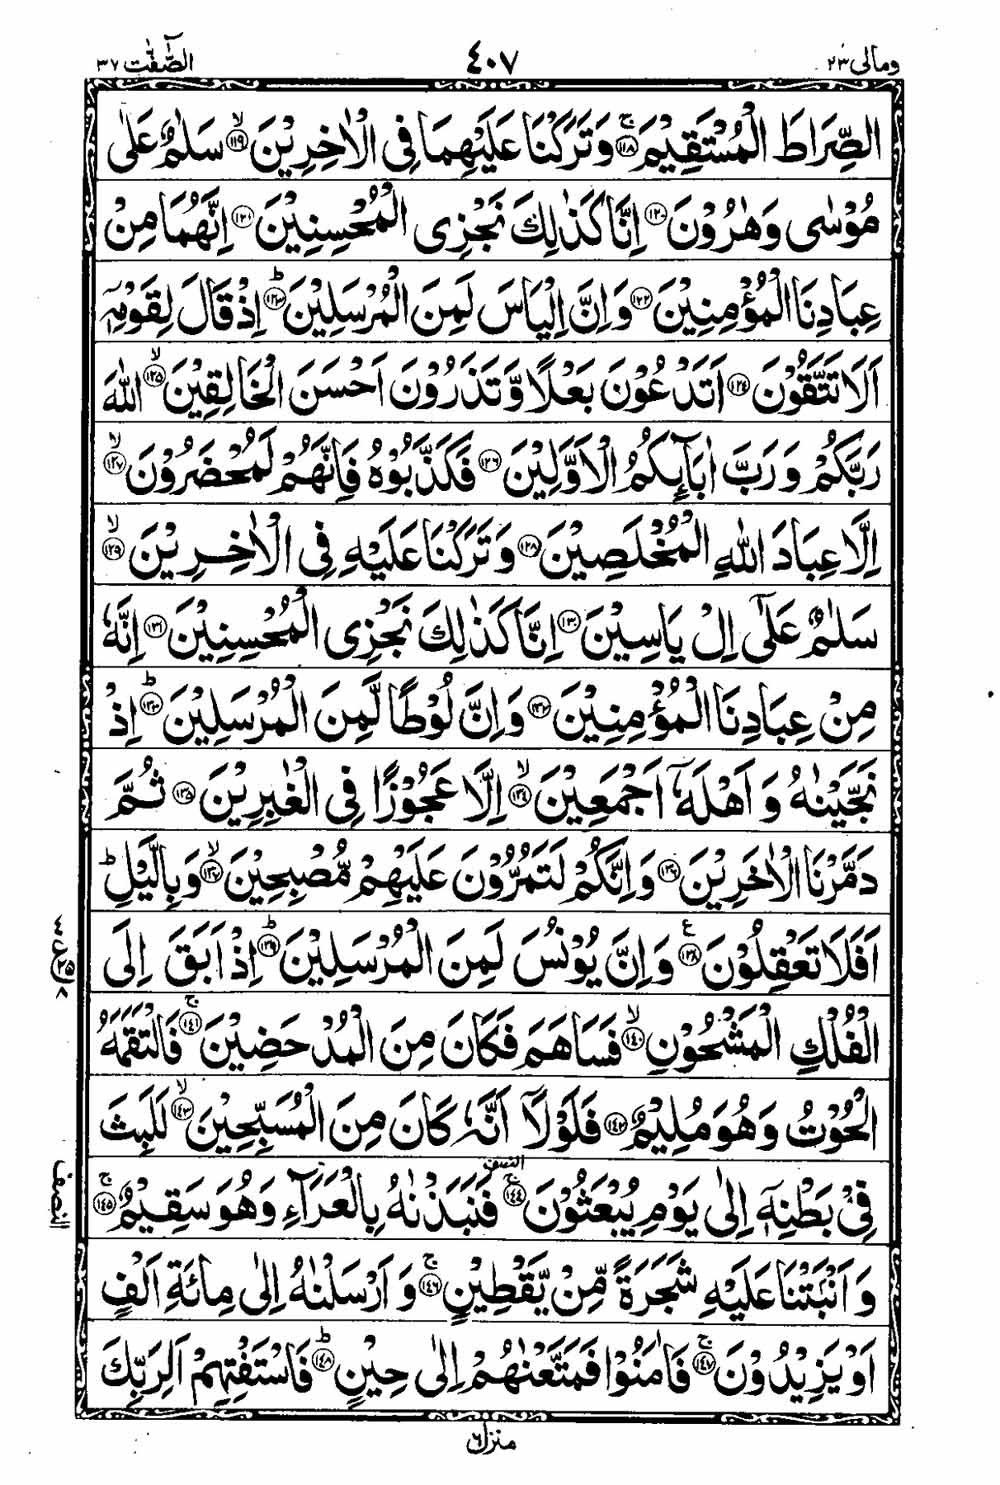 ومالی ٢٣ ٤٠٧ الصّٰٓفّٰت ٣٧
الصِّرَاطَ الْمُسْتَقِيْمَ ۚ‏﴿۱۱۸﴾ وَتَرَكْنَا عَلَيْهِمَا فِى الْاٰخِرِيْنَ ۙ‏﴿۱۱۹﴾ سَلٰمٌ عَلٰى
مُوْسٰى وَهٰرُوْنَ ﴿۱۲۰﴾ اِنَّا كَذٰلِكَ نَجْزِى الْمُحْسِنِيْنَ ﴿۱۲۱﴾ اِنَّهُمَا مِنْ
عِبَادِنَا الْمُؤْمِنِيْنَ ﴿۱۲۲﴾ وَاِنَّ اِلْيَاسَ لَمِنَ الْمُرْسَلِيْنَ ؕ‏﴿۱۲۳﴾ اِذْ قَالَ لِقَوْمِهٖۤ
اَلَا تَتَّقُوْنَ ﴿۱۲۴﴾ اَتَدْعُوْنَ بَعْلًا وَّتَذَرُوْنَ اَحْسَنَ الْخَالِقِيْنَ ۙ‏﴿۱۲۵﴾ اللّٰهَ
رَبَّكُمْ وَرَبَّ اٰبَآئِكُمُ الْاَوَّلِيْنَ ﴿۱۲۶﴾ فَكَذَّبُوْهُ فَاِنَّهُمْ لَمُحْضَرُوْنَ ۙ‏﴿۱۲۷﴾
اِلَّا عِبَادَ اللّٰهِ الْمُخْلَصِيْنَ ﴿۱۲۸﴾ وَتَرَكْنَا عَلَيْهِ فِى الْاٰخِرِيْنَ ۙ‏﴿۱۲۹﴾
سَلٰمٌ عَلٰٓى اِلْ يَاسِيْنَ ﴿۱۳۰﴾ اِنَّا كَذٰلِكَ نَجْزِى الْمُحْسِنِيْنَ ﴿۱۳۱﴾ اِنَّهٗ
مِنْ عِبَادِنَا الْمُؤْمِنِيْنَ ﴿۱۳۲﴾ وَاِنَّ لُوْطًا لَّمِنَ الْمُرْسَلِيْنَ ؕ‏﴿۱۳۳﴾ اِذْ
نَجَّيْنٰهُ وَاَهْلَهٗۤ اَجْمَعِيْنَ ۙ‏﴿۱۳۴﴾ اِلَّا عَجُوْزًا فِى الْغٰبِرِيْنَ ﴿۱۳۵﴾ ثُمَّ
دَمَّرْنَا الْاٰخَرِيْنَ ﴿۱۳۶﴾ وَاِنَّكُمْ لَتَمُرُّوْنَ عَلَيْهِمْ مُّصْبِحِيْنَ ۙ‏﴿۱۳۷﴾ وَبِالَّيْلِ ؕ
اَفَلَا تَعْقِلُوْنَ ﴿۱۳۸﴾ ع وَاِنَّ يُوْنُسَ لَمِنَ الْمُرْسَلِيْنَ ؕ‏﴿۱۳۹﴾ اِذْ اَبَقَ اِلَى
الْفُلْكِ الْمَشْحُوْنِ ۙ‏﴿۱۴۰﴾ فَسَاهَمَ فَكَانَ مِنَ الْمُدْحَضِيْنَ ۚ‏﴿۱۴۱﴾ فَالْتَقَمَهُ
الْحُوْتُ وَهُوَ مُلِيْمٌ ﴿۱۴۲﴾ فَلَوْلَاۤ اَنَّهٗ كَانَ مِنَ الْمُسَبِّحِيْنَ ۙ‏﴿۱۴۳﴾ لَلَبِثَ
النصف
فِىْ بَطْنِهٖۤ اِلٰى يَوْمِ يُبْعَثُوْنَ ۚ‏﴿۱۴۴﴾ فَنَبَذْنٰهُ بِالْعَرَآءِ وَهُوَ سَقِيْمٌ ۚ‏﴿۱۴۵﴾
النصف
وَاَنْۢبَتْنَا عَلَيْهِ شَجَرَةً مِّنْ يَّقْطِيْنٍ ۚ‏﴿۱۴۶﴾ وَاَرْسَلْنٰهُ اِلٰى مِائَةِ اَلْفٍ
اَوْ يَزِيْدُوْنَ ۚ‏﴿۱۴۷﴾ فَاٰمَنُوْا فَمَتَّعْنٰهُمْ اِلٰى حِيْنٍ ؕ‏﴿۱۴۸﴾ فَاسْتَفْتِهِمْ اَلِرَبِّكَ
منزل ٦